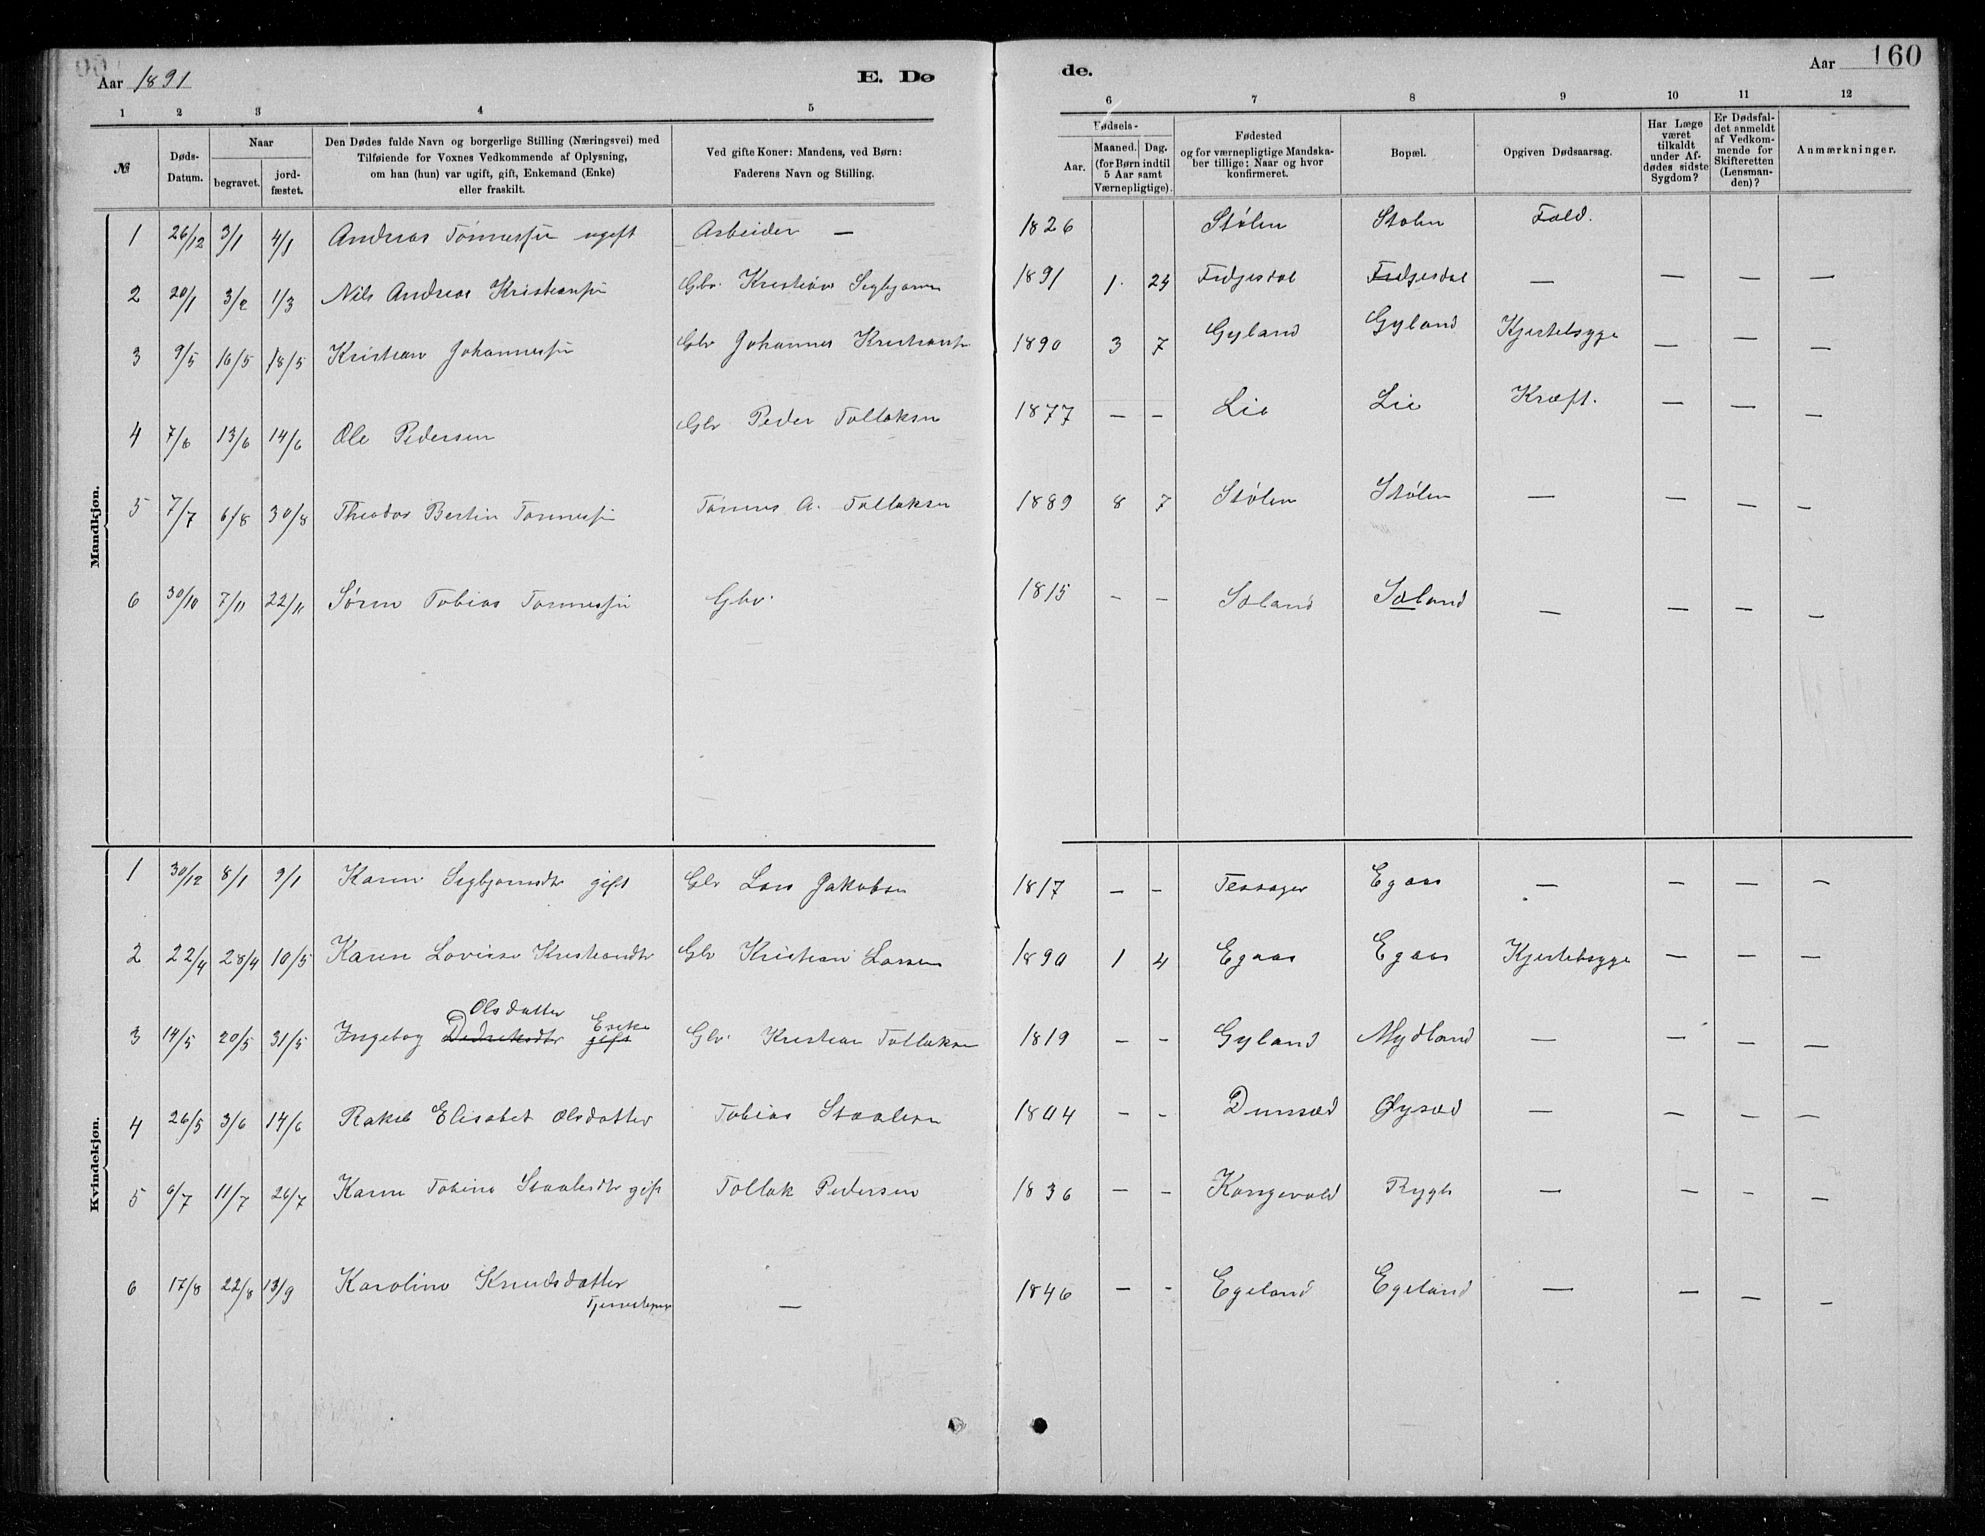 Aar 1891 E. Dø
de. Aar 160
1 2 3 4 5
6 7 8 9 10 11 12
№ Døds-Datum. Naar begravet. jordfæstet. Den Dødes fulde Navn og borgerlige Stilling (Næringsvei) med Tilføiende for Voxnes Vedkommende af Oplysning, om han (hun) var ugift, gift, Enkemand (Enke) eller fraskilt. Ved gifte Koner: Mandens, ved Børn: Faderens Navn og Stilling.
Fødsels- Aar. Maaned. Dag. (for Børn indtil 5 Aar samt Værnepligtige). Fødested og for værnepligtige Mandskaber tillige: Naar og hvor konfirmeret. Bopæl. Opgiven Dødsaarsag. Har Læge været tilkaldt under Afdødes sidste Sygdom? Er Dødsfaldet anmeldt af Vedkommende for Skifteretten (Lensmanden)? Anmærkninger.
Mandkjøn.
1 26/12 3/1 4/1 Andreas Tønnessen ugift Arbeider — 1826 Stølen Stolen Fald.
2 20/1 3/2 1/3 Nils Andreas Kristiansen Gbr. Kristian Sigbjørnsen 1891 1. 24 Fidjesdal Fidjesdal — — — —
3 9/5 16/5 18/5 Kristian Johannessen Gbr Johannes Kristians 1890 3 7 Gyland Gyland Kjertelsyge — — —
4 7/6 13/6 14/6 Ole Pedersen Gbr Peder Tollaksen 1877 — — Lie Lie Kræft. — — —
5 7/7 6/8 30/8 Theodor Bertin Tønnessen Tønnes A. Tollaksen 1889 8 7 Stølen Stølen — — — —
6 30/10 7/11 22/11 Søren Tobias Tønnessen Gbr. 1815 — — Søland Søland — — — —
Kvindekjøn.
1 30/12 8/1 9/1 Karen Sigbjørnsdtr gift Gbr Lars Jakobsen 1817 — — Tessager Egaas — — — —
2 22/4 28/4 10/5 Karen Lovisse Kristiandtr Gbr Kristian Larsen 1890 1 4 Egaas Egaas Kjertelsyge — — —
Olsdatter Enke
3 14/5 20/5 31/5 Ingebog Didriksdtr gift Gbr. Kristian Tollaksen 1819 — — Gyland Mydland — — — —
4 26/5 3/6 14/6 Rakel Elisabet Olsdatter Tobias Staalesen 1804 — — Dunsæd Øysæd — — — —
5 6/7 11/7 26/7 Karen Tobine Staalesdtr gift Tollak Pedersen 1836 — — Kongevold Rygh — — — —
6 17/8 22/8 13/9 Karoline Knudsdatter — 1846 — — Egeland Egeland — — — —
Tjenestepige